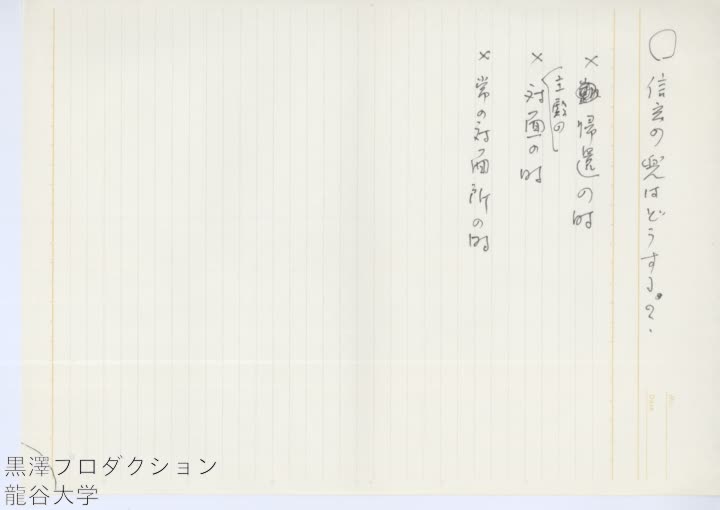 ○ 信玄の兜はどうする。?
× 帰還の時
主殿の
× 対面の時
× 常の対面所の時
No.
Date
黒澤プロダクション
龍谷大学